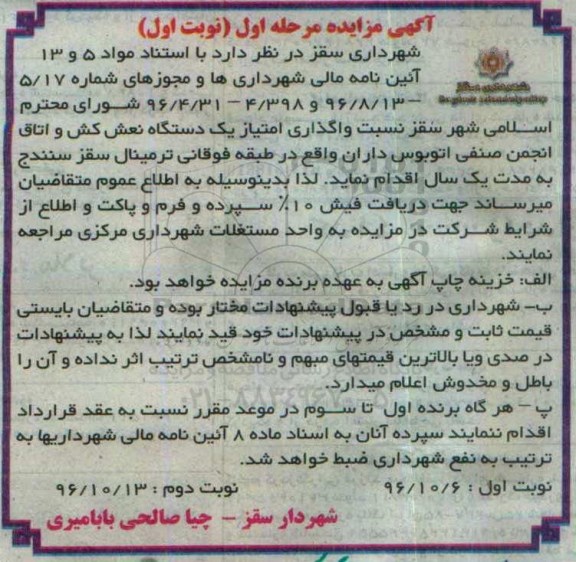 آگهی مزایده مرحله اول (نوبت اول)
شهرداری سقز در نظر دارد با استناد مواد ۵ و ۱۳
آئین نامه مالی شهرداری ها و مجوزهای شماره ۵/۱۷
– ۹۶/۸/۱۳ و ۴/۳۹۸ – ۹۶/۴/۳۱ شورای محترم
اسلامی شهر سقز نسبت واگذاری امتیاز یک دستگاه نعش کش و اتاق
انجمن صنفی اتوبوس داران واقع در طبقه فوقانی ترمینال سقز سنندج
به مدت یک سال اقدام نماید. لذا بدینوسیله به اطلاع عموم متقاضیان
میرساند جهت دریافت فیش ۱۰٪ سپرده و فرم و پاکت و اطلاع از
شرایط شرکت در مزایده به واحد مستغلات شهرداری مرکزی مراجعه
نمایند.
الف: خزینه چاپ آگهی به عهده برنده مزایده خواهد بود.
ب- شهرداری در رد یا قبول پیشنهادات مختار بوده و متقاضیان بایستی
قیمت ثابت و مشخص در پیشنهادات خود قید نمایند لذا به پیشنهادات
در صدی ویا بالاترین قیمتهای مبهم و نامشخص ترتیب اثر نداده و آن را
باطل و مخدوش اعلام میدارد.
پ – هر گاه برنده اول تا سوم در موعد مقرر نسبت به عقد قرارداد
اقدام ننمایند سپرده آنان به اسناد ماده ۸ آئین نامه مالی شهرداریها به
ترتیب به نفع شهرداری ضبط خواهد شد.
نوبت اول : ۹۶/۱۰/۶ نوبت دوم : ۹۶/۱۰/۱۳
شهردار سقز – چیا صالحی بابامیری